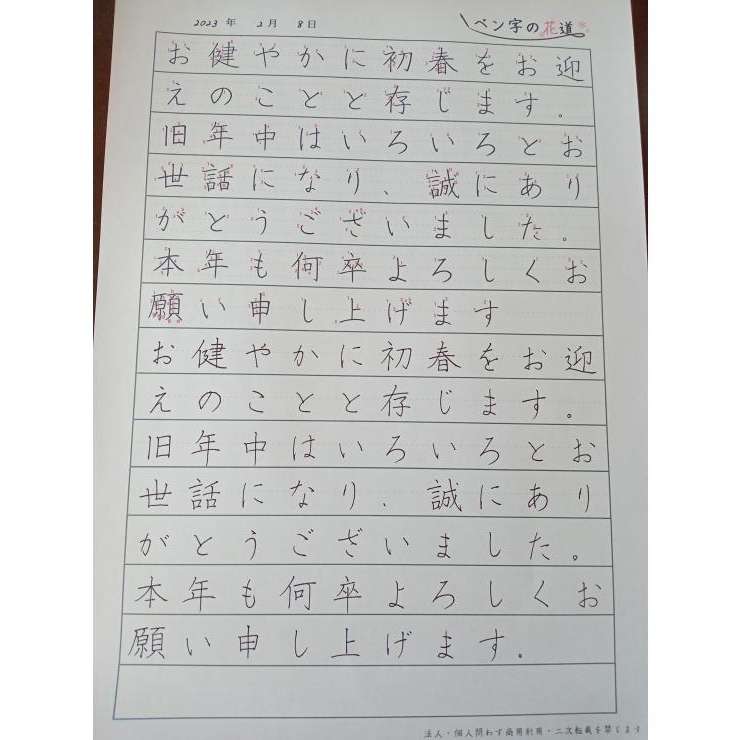 2023年 2月 8日
ペン字の花道
お健やかに初春をお迎
えのことと存じます。
旧年中はいろいろとお
世話になり、誠にあり
がとうございました。
本年も何卒よろしくお
願い申し上げます
お健やかに初春をお迎
えのことと存じます。
旧年中はいろいろとお
世話になり、誠にあり
がとうございました。
本年も何卒よろしくお
願い申し上げます。
法人・個人問わず商用利用・二次転載を禁じます